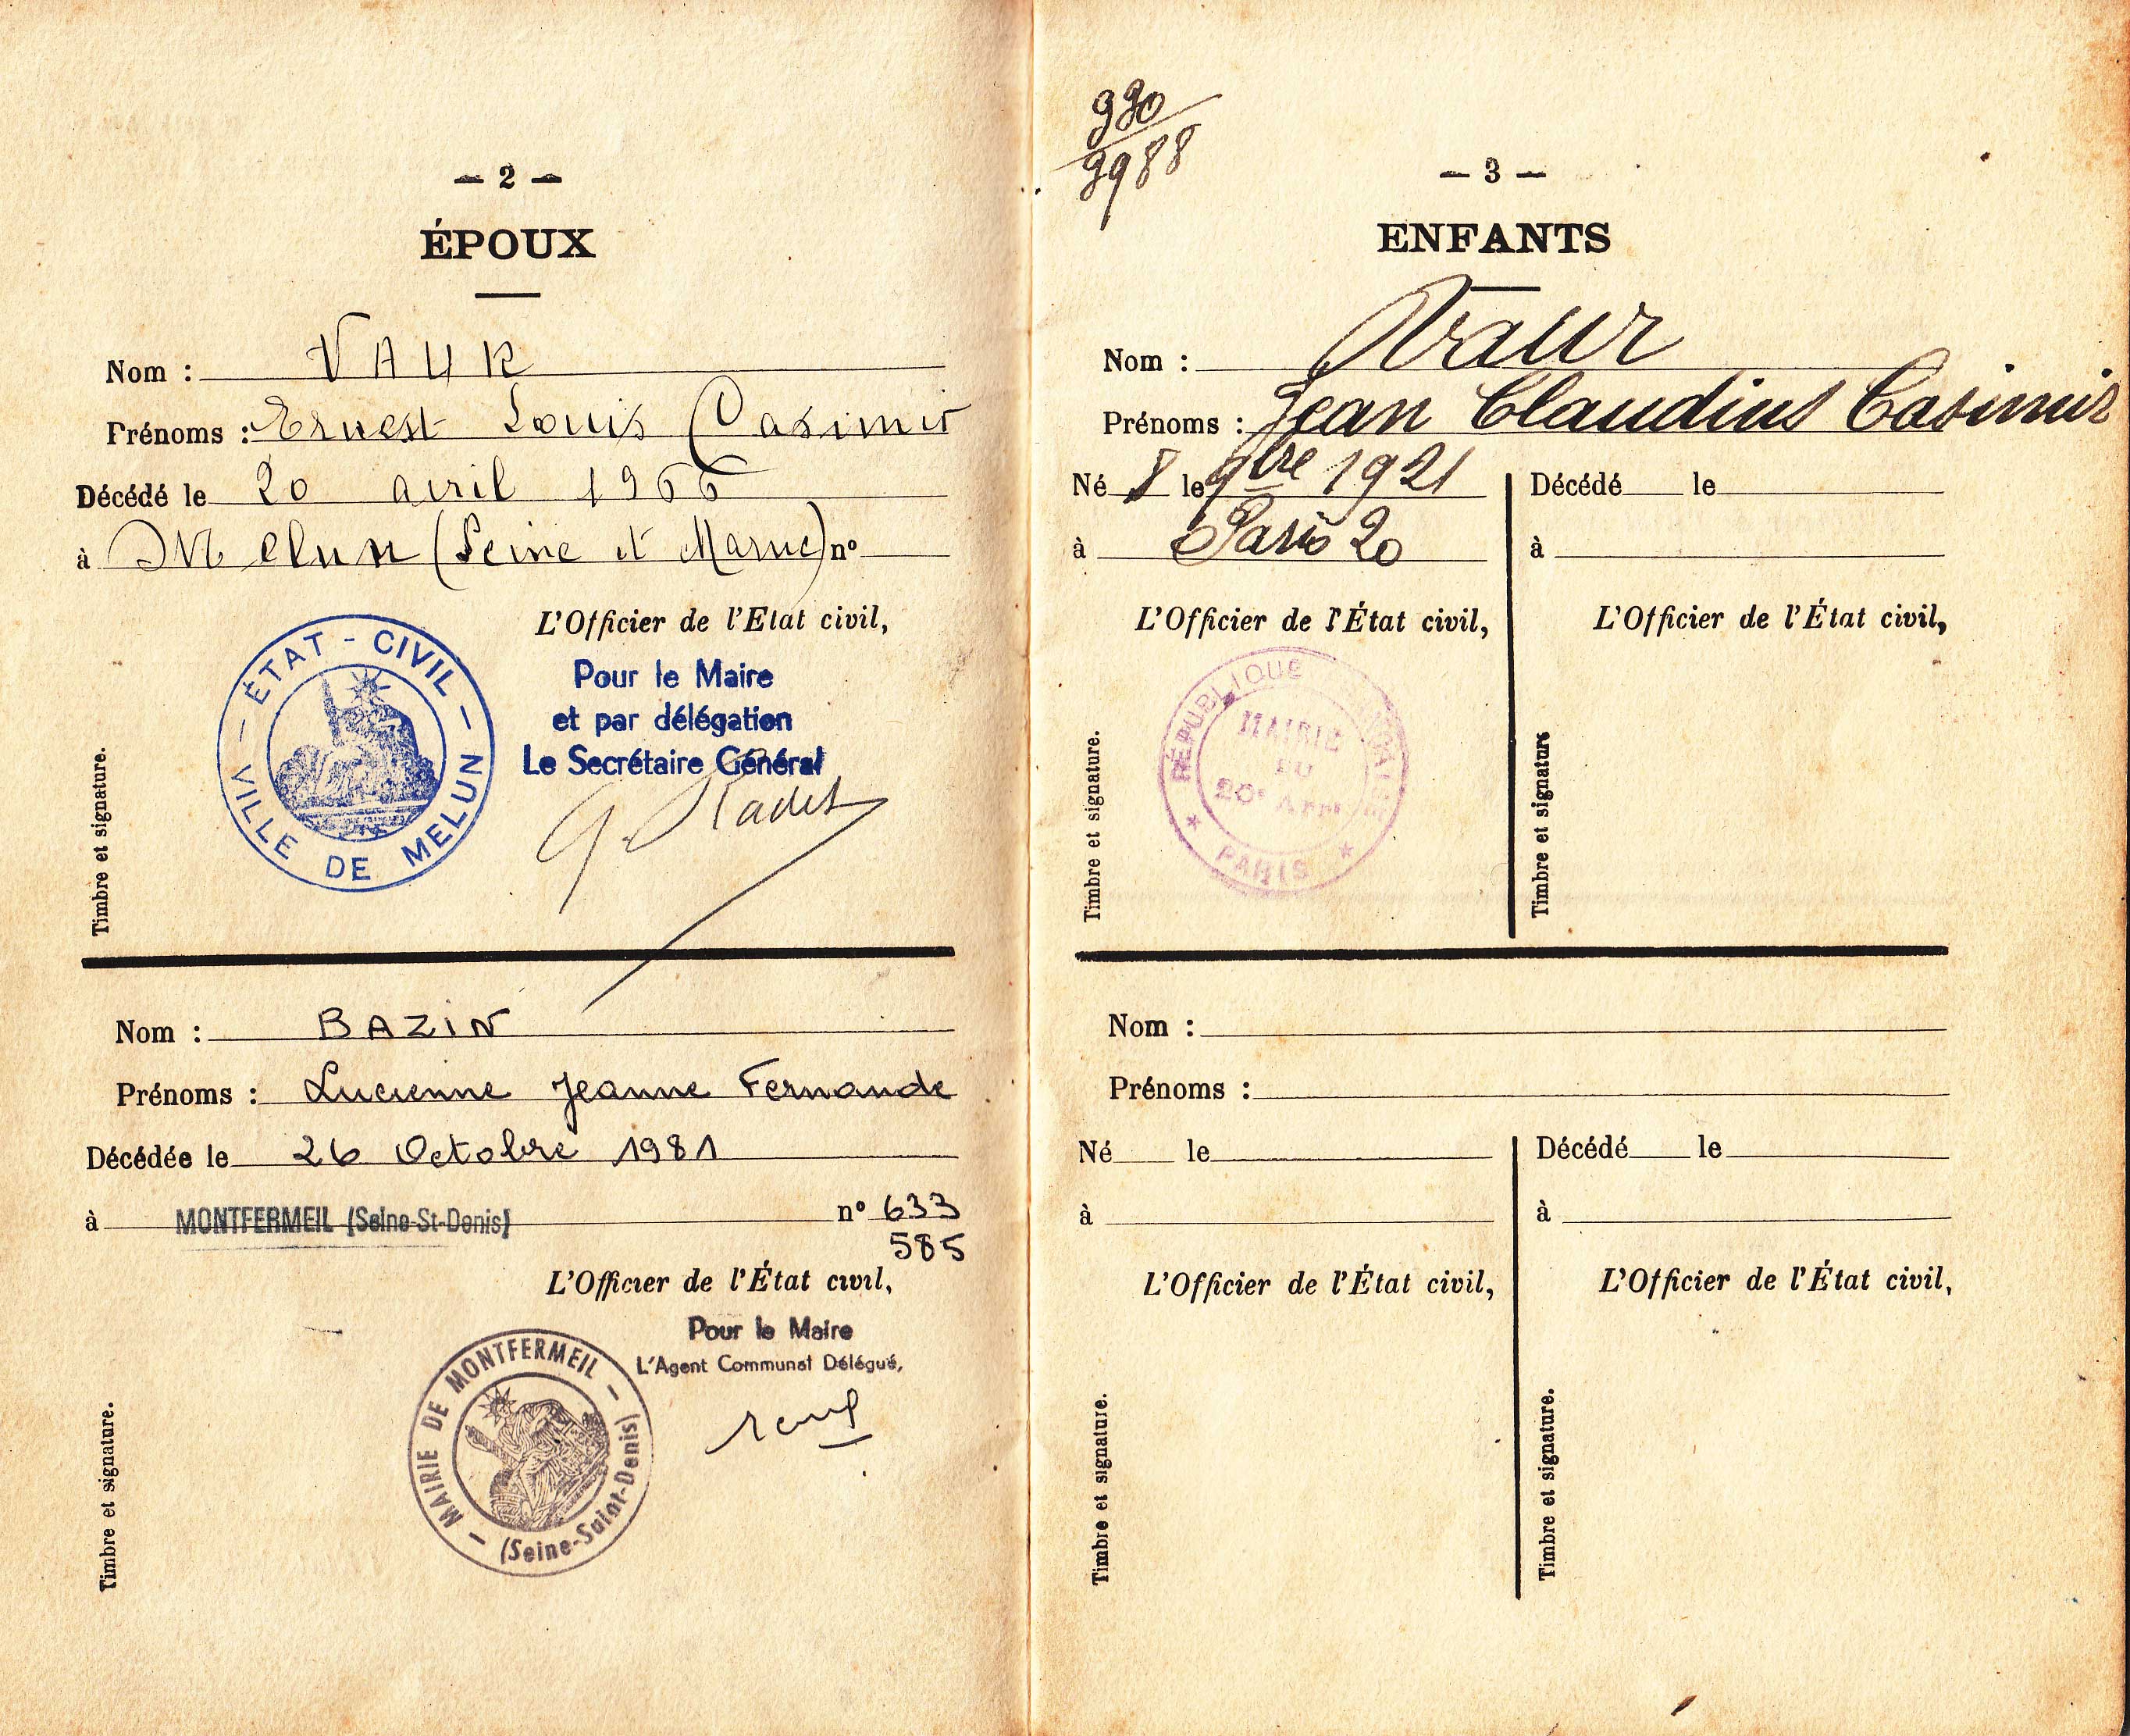 — 2 —
ÉPOUX
Nom : VAUR
Prénoms : Ernest Louis Casimir
Décédé le 20 avril 1966
à Melun (Seine et Marne) nº
L'Officier de l'Etat civil,
Pour le Maire
et par délégation
Le Secrétaire Général
ÉTAT - CIVIL
VILLE DE MELUN
Timbre et signature.
Nom : BAZIN
Prénoms : Lucienne Jeanne Fernande
Décédée le 26 Octobre 1981
à MONTFERMEIL (Seine-St-Denis) nº 633
585
L'Officier de l'État civil,
Pour le Maire
L'Agent Communal Délégué,
MAIRIE DE MONTFERMEIL
(Seine-Saint-Denis)
Timbre et signature.
990
9988
— 3 —
ENFANTS
Nom : Vaur
Prénoms : Jean Claudius Casimir
Né 8 le 9bre 1921
à Paris 20
L'Officier de l'État civil,
RÉPUBLIQUE FRANÇAISE
MAIRIE
DU
20e Arrt
PARIS
Timbre et signature.
Décédé le
à
L'Officier de l'État civil,
Timbre et signature
Nom :
Prénoms :
Né le
à
L'Officier de l'État civil,
Timbre et signature.
Décédé le
à
L'Officier de l'État civil,
Timbre et signature.